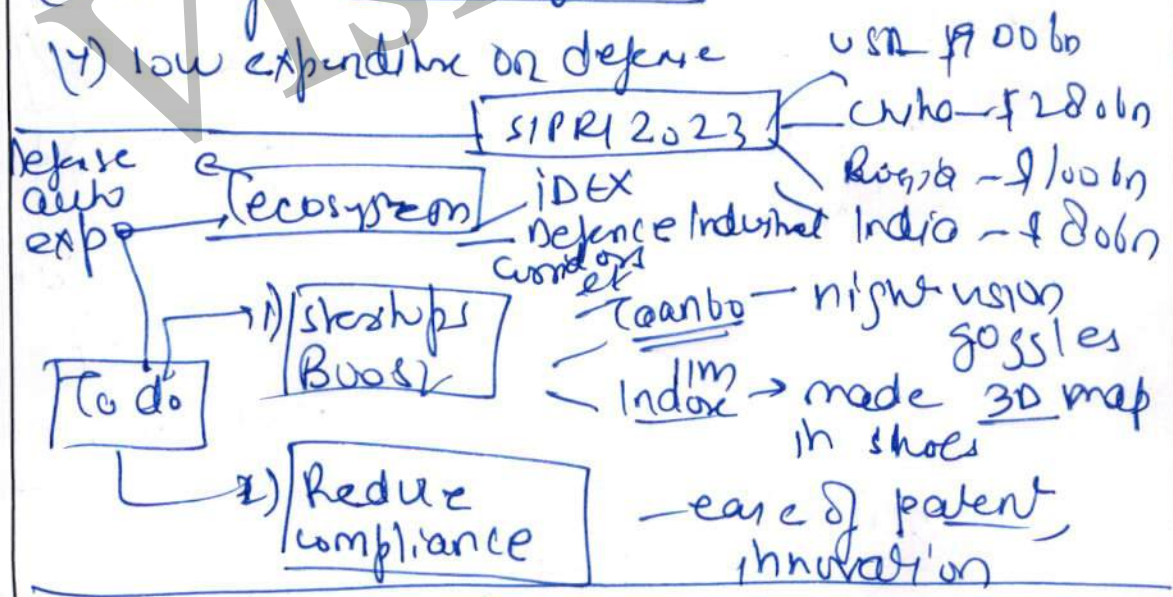 VIS
(4) low expenditure on defense
SIPRI 2023
USA $900bn
China - $280bn
Russia - $100bn
India - $80bn
Defense
auto
exp
ecosystem
iDEX
Defence Industrial
corridors
To do
1) startups
Boost
ex
Tonbo - night vision
goggles
IIM
Indore → made 3D map
in shoes
2) Reduce
compliance
- ease of patent,
innovation